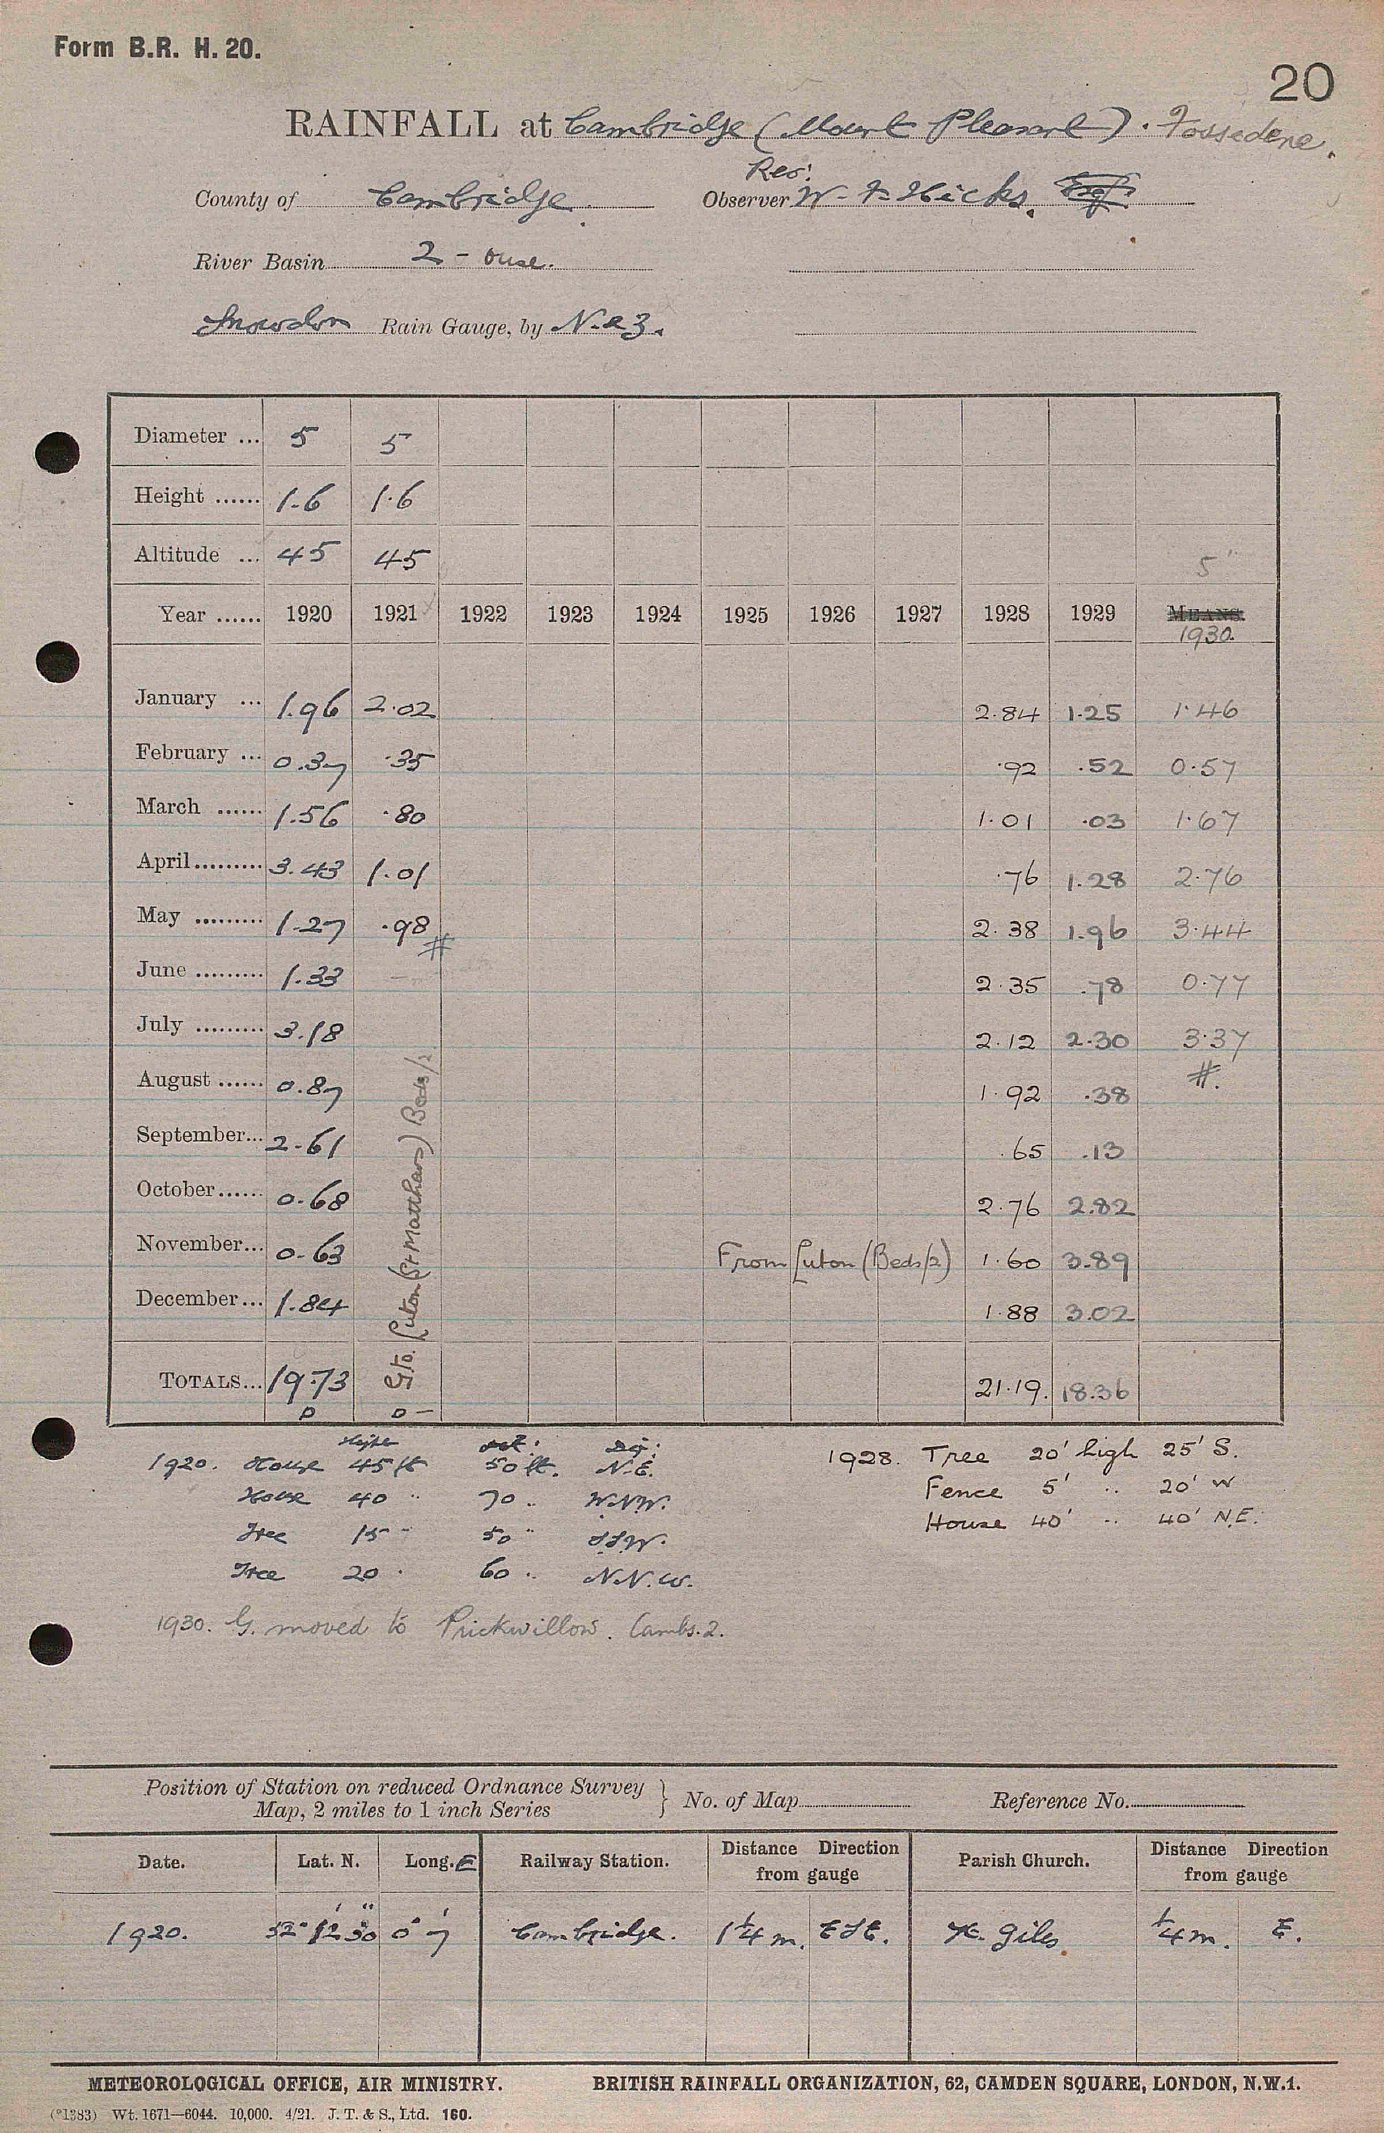 Form B.R. H. 20.
20
RAINFALL at Cambridge (Mount Pleasant). Fossedene.
County of Cambridge.
Rev:
Observer W. F. Hicks.
River Basin 2 - Ouse.
Snowdon Rain Gauge, by N & Z.
Diameter ... 5 5
Height ...... 1.6 1.6
Altitude ... 45 45 5"
Year ...... 1920 1921 1922 1923 1924 1925 1926 1927 1928 1929 MEANS.
1930
January ... 1.96 2.02 2.84 1.25 1.46
February ... 0.37 .35 .92 .52 0.57
March ...... 1.56 .80 1.01 .03 1.67
April......... 3.43 1.01 .76 1.28 2.76
May ......... 1.27 .98 2.38 1.96 3.44
#
June ......... 1.33 - 2.35 .78 0.77
July ......... 3.18 2.12 2.30 3.37
#.
August ...... 0.87 1.92 .38
September... 2.61 .65 .13
October...... 0.68 2.76 2.82
November... 0.63 From Luton (Beds/2) 1.60 3.89
December... 1.84 1.88 3.02
G. to. Luton (St Matthews) Beds/2.
TOTALS... 19.73 21.19. 18.36
Height Dist: Dir:
1920. House 45 ft 50 ft. N.E.
House 40 .. 70 .. W.N.W.
Tree 15 - 50 " S.S.W.
Tree 20 . 60 .. N.N.W.
1928. Tree 20' high 25' S.
Fence 5' .. 20' W
House 40' .. 40' N.E.
1930. G. moved to Prickwillow. Cambs. 2.
Position of Station on reduced Ordnance Survey
Map, 2 miles to 1 inch Series
No. of Map
Reference No.
Date. Lat. N. Long. E Railway Station. Distance Direction
from gauge
Parish Church. Distance Direction
from gauge
1920. 52° 12' 30" 0° 7' Cambridge. 1 1/4 m. ESE. St. Giles. 1/4 m. E.
METEOROLOGICAL OFFICE, AIR MINISTRY. BRITISH RAINFALL ORGANIZATION, 62, CAMDEN SQUARE, LONDON, N.W.1.
(*1383) Wt. 1671—6044. 10,000. 4/21. J. T. & S., Ltd. 160.